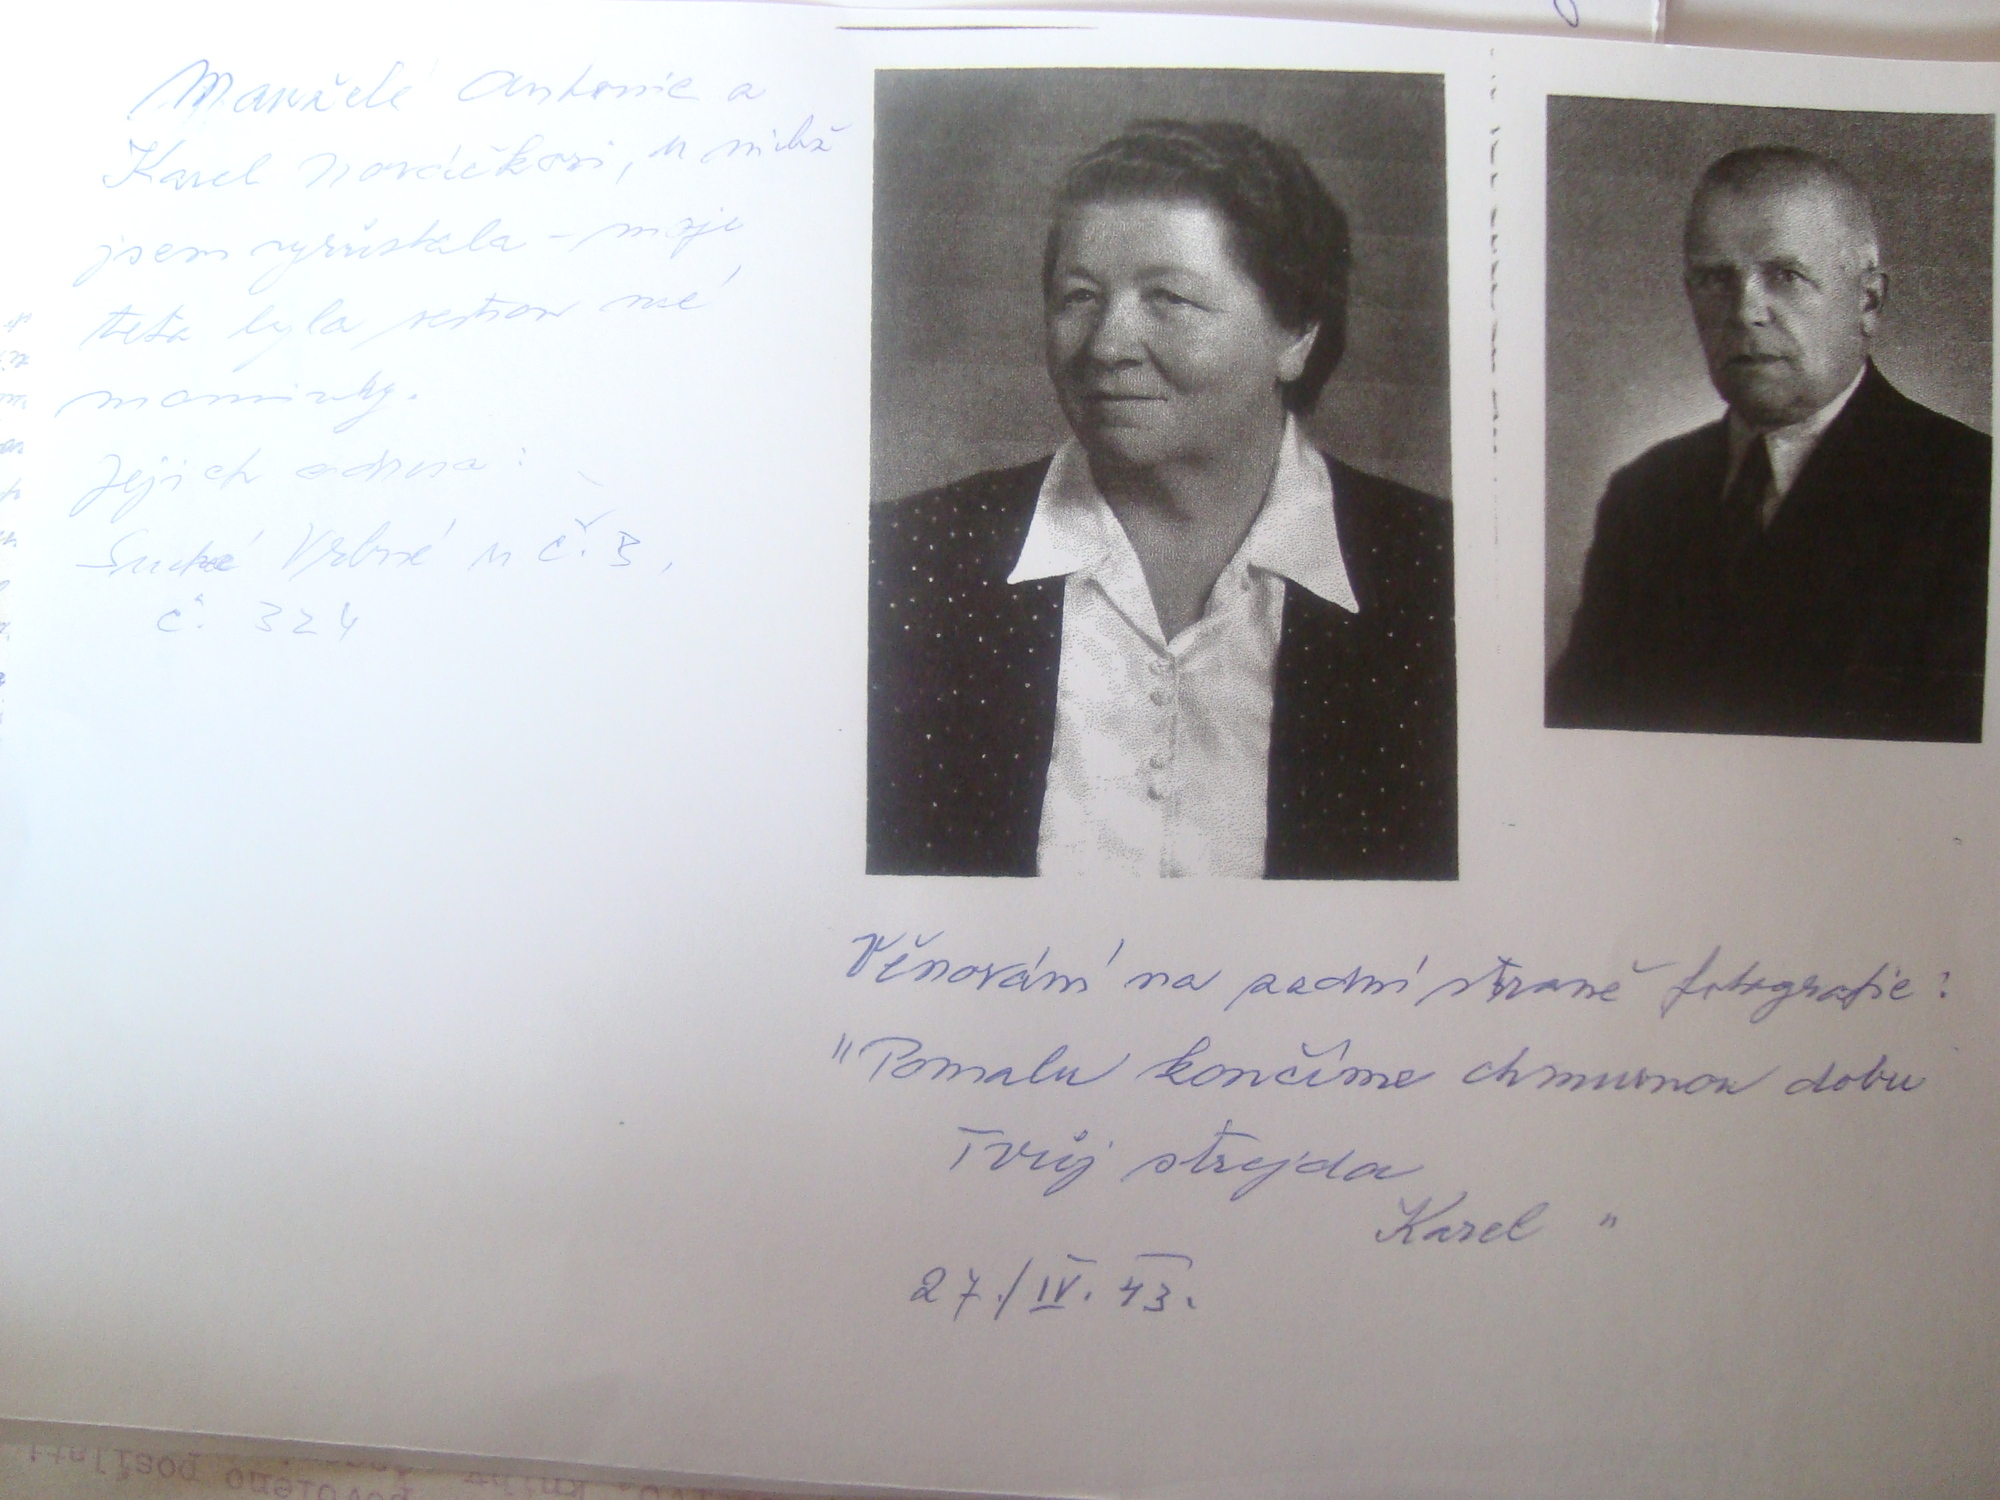 Manželé Antonie a
Karel Nováčkovi, u nichž
jsem vyrůstala - moje
teta byla sestrou mé
maminky.
Jejich adresa:
Suché Vrbné u Č.B,
č. 324
Věnování na zadní straně fotografie:
"Pomalu končíme chmurnou dobu
Tvůj strejda
Karel "
27./IV. 43.
povoleno posílati